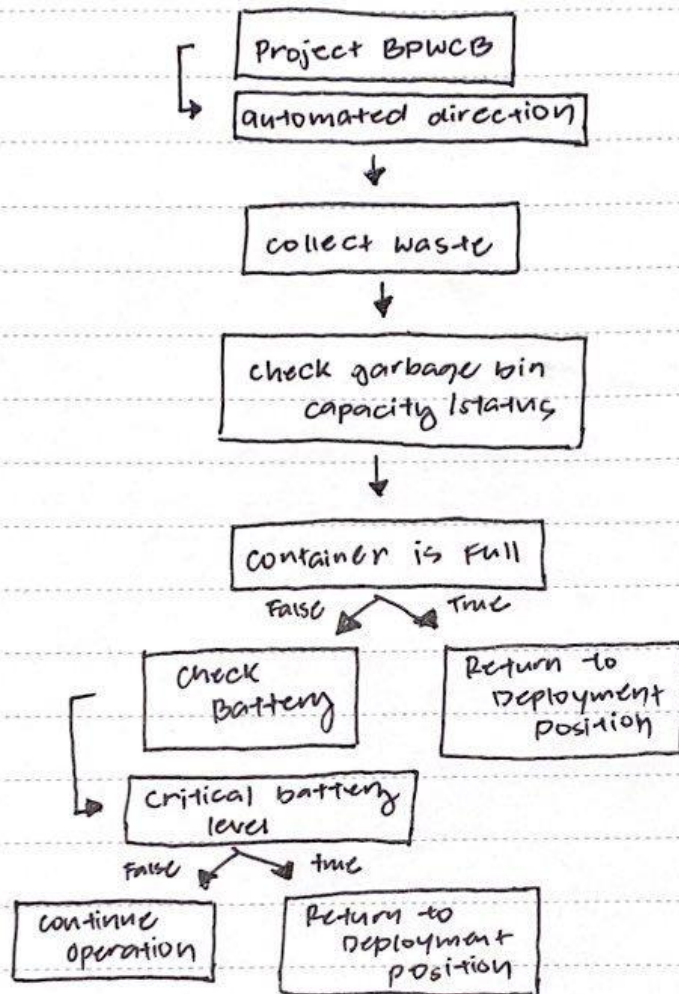 Project BPWCB
automated direction
collect waste
check garbage bin
capacity /status
container is Full
False True
Check
Battery
Return to
Deployment
position
critical battery
level
False true
continue
operation
Return to
Deployment
position